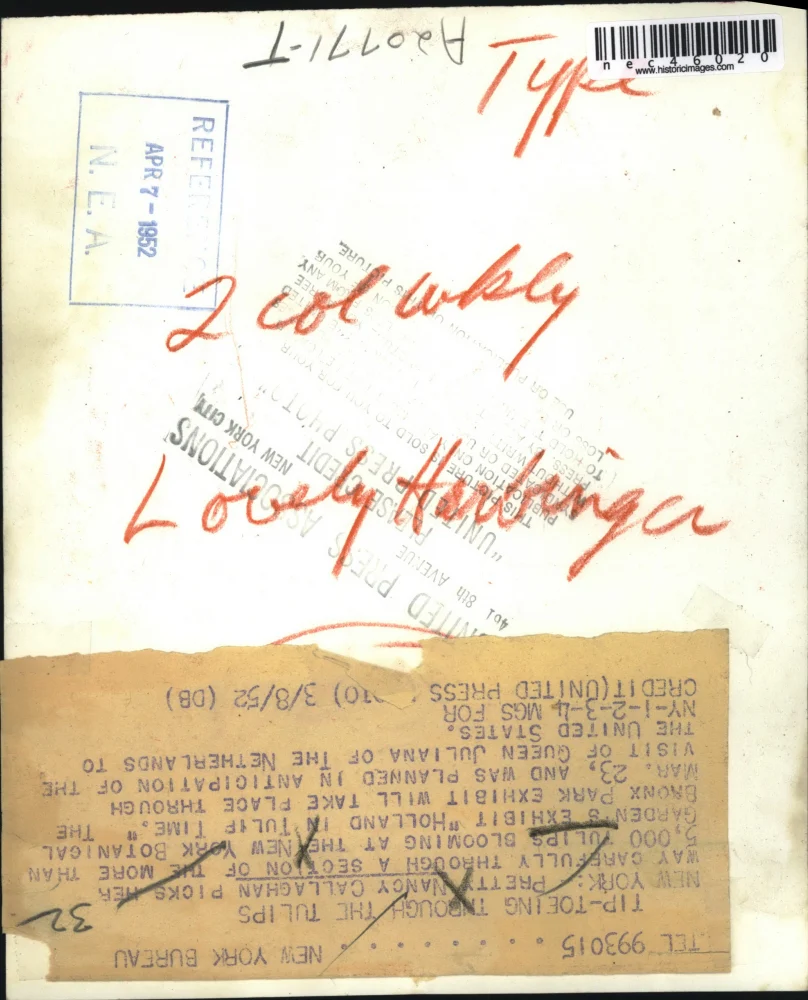 A20771-T
Type
nec46020
www.historicimages.com
REFERENCE
APR 7 - 1952
N. E. A.
2 col wkly
Lovely Harbinger
UNITED PRESS ASSOCIATIONS
401 8th AVENUE NEW YORK CITY
PLEASE CREDIT
"UNITED PRESS PHOTO"
THIS PICTURE IS SOLD TO YOU FOR YOUR
PUBLICATION
TEL 993015 . . . . . . . . NEW YORK BUREAU
TIP-TOEING THROUGH THE TULIPS
NEW YORK: PRETTY NANCY CALLAGHAN PICKS HER
WAY CAREFULLY THROUGH A SECTION OF THE MORE THAN
5,000 TULIPS BLOOMING AT THE NEW YORK BOTANICAL
GARDEN'S EXHIBIT "HOLLAND IN TULIP TIME." THE
BRONX PARK EXHIBIT WILL TAKE PLACE THROUGH
MAR. 23, AND WAS PLANNED IN ANTICIPATION OF THE
VISIT OF QUEEN JULIANA OF THE NETHERLANDS TO
THE UNITED STATES.
NY-1-2-3-4 MGS FOR
CREDIT(UNITED PRESS 3/8/52 (DB)
32